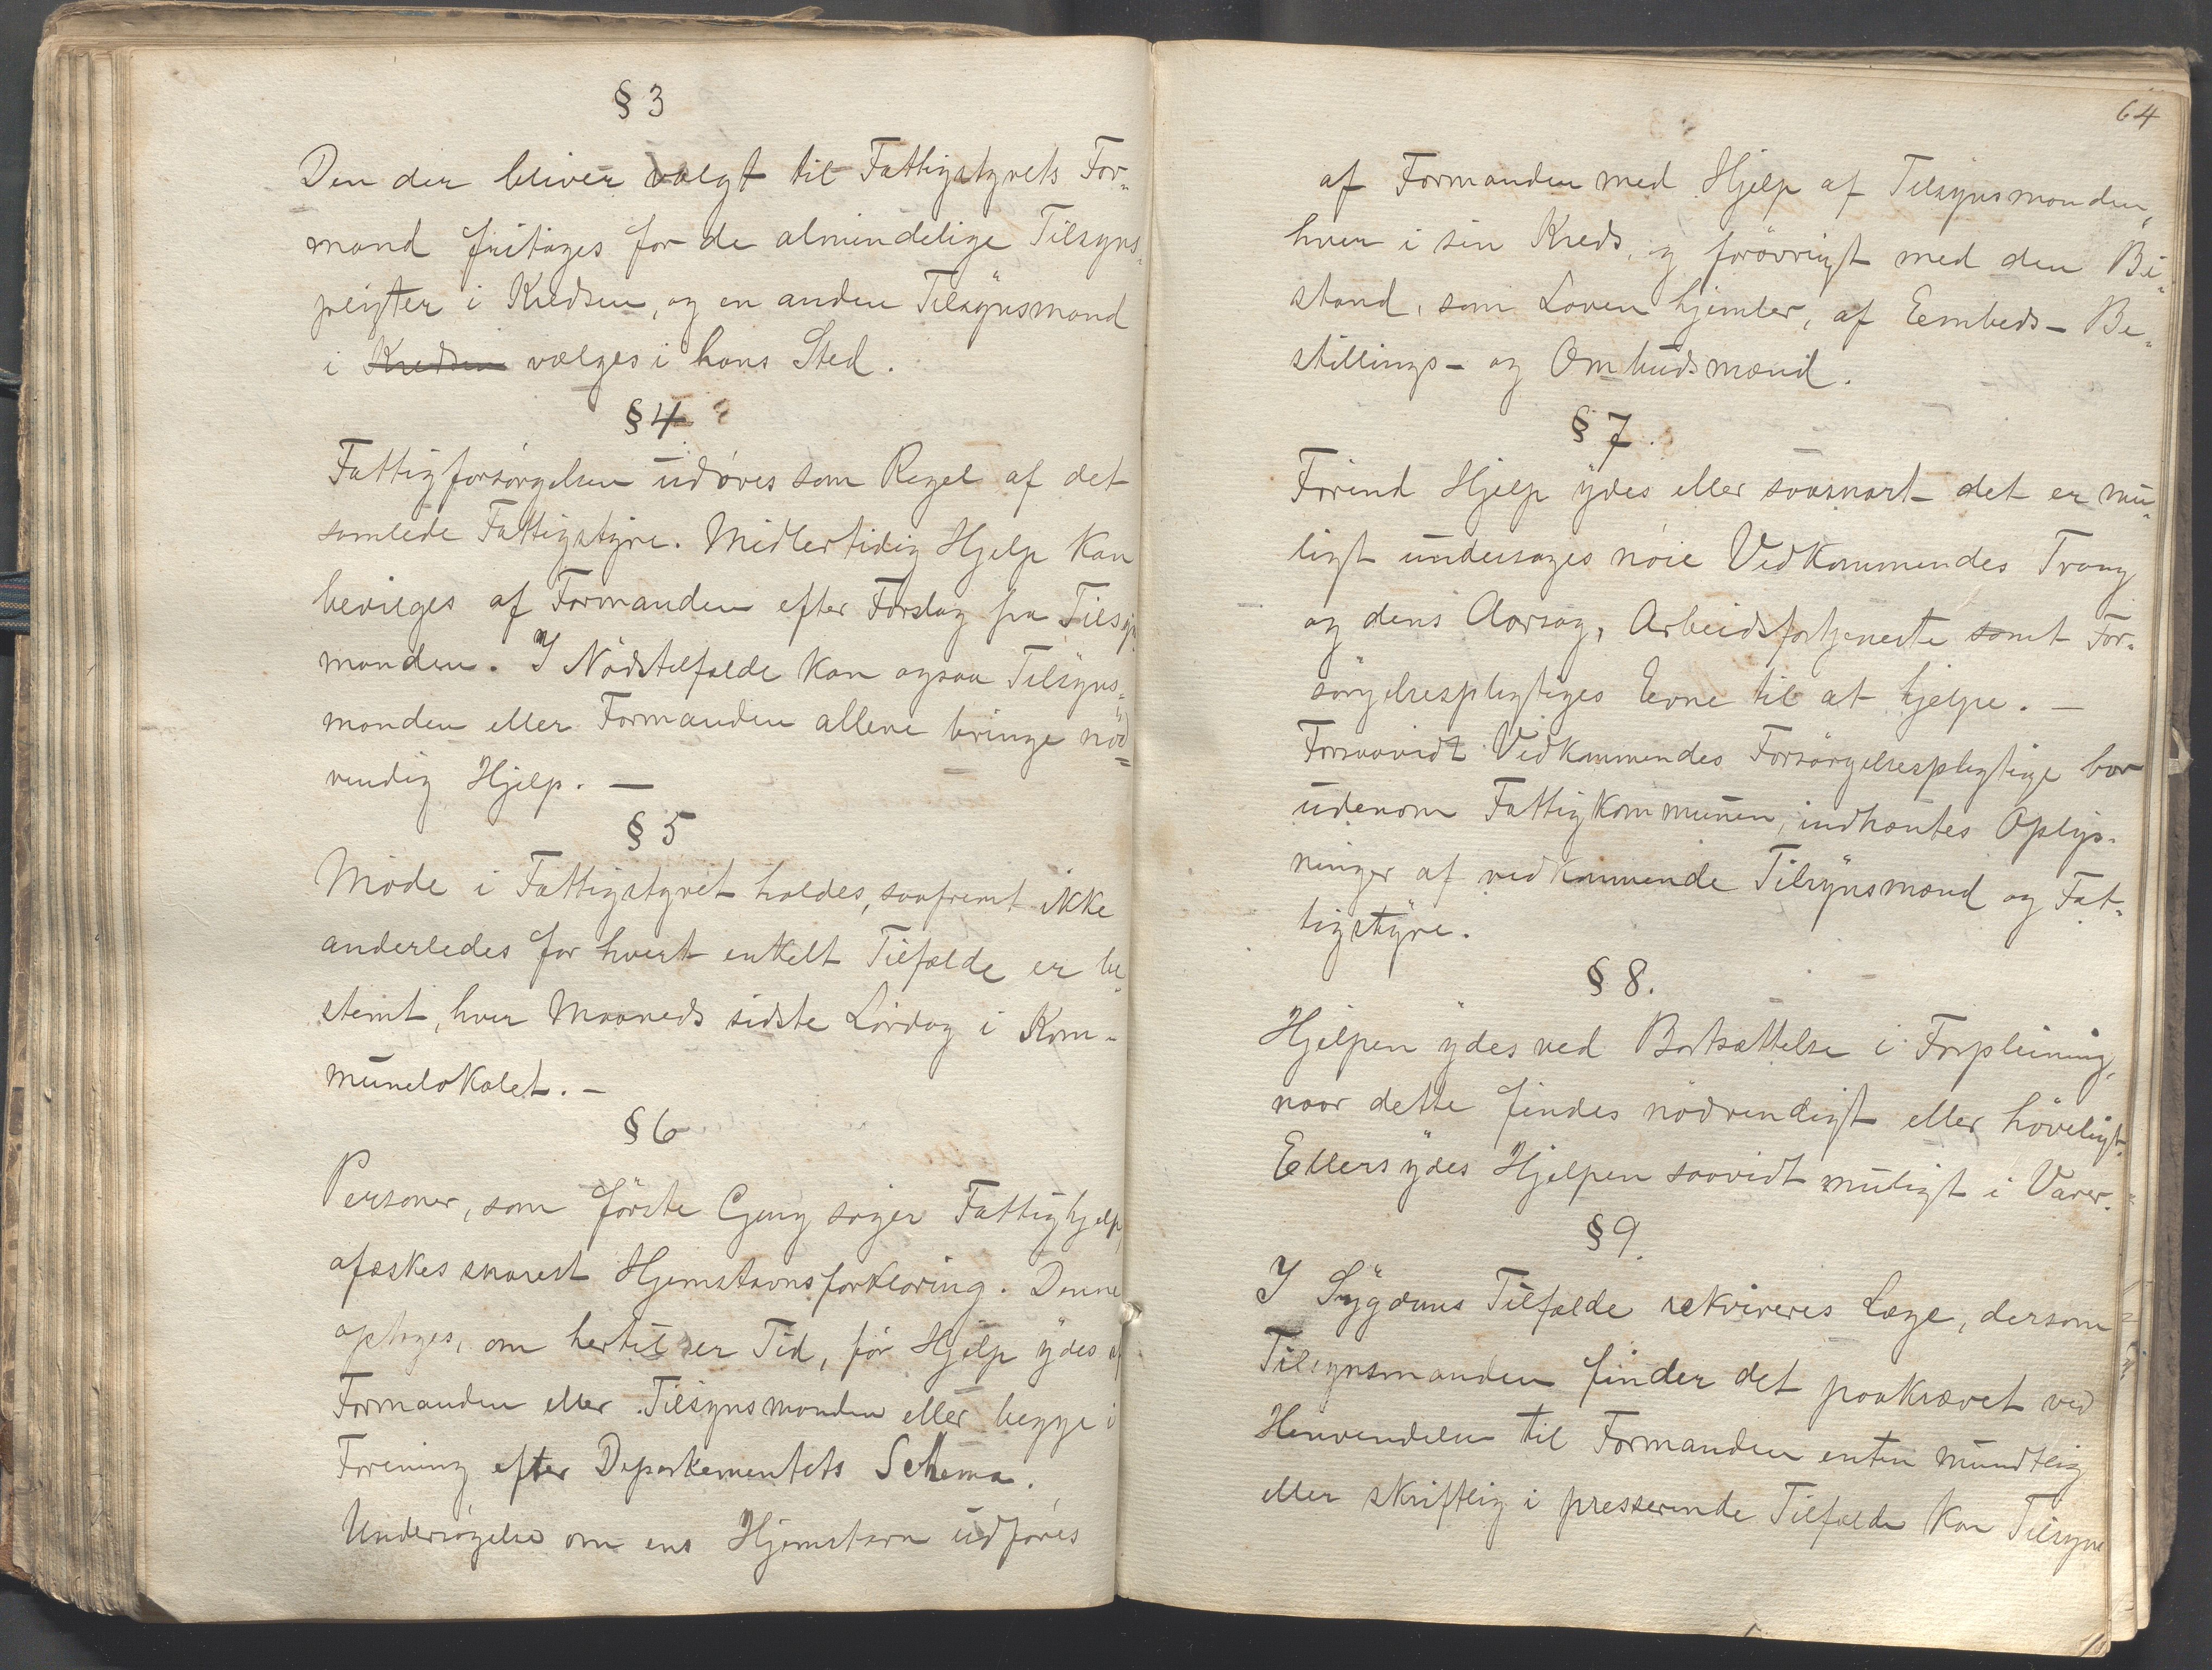 § 3
Den der bliver valgt til Fattigstyrets For-
mand fritages for de almindelige Tilsyns-
pligter i Kredsen, og en anden Tilsynsmand
i Kredsen vælges i hans Sted.
§ 4
Fattigforsørgelsen udøves som Regel af det
samlede Fattigstyre. Midlertidig Hjelp kan
bevilges af Formanden efter Forslag fra Tilsyns
manden. I Nødstilfælde kan ogsaa Tilsyns-
manden eller Formanden allene bringe nød=
vendig Hjelp. —
§ 5
Møde i Fattigstyret holdes, saafremt ikke
anderledes for hvert enkelt Tilfælde er be-
stemt, hver Maaneds sidste Lørdag i Kom-
munelokalet. —
§ 6
Personer, som første Gang søger Fattighjelp,
afæskes snarest Hjemstavnsforklaring. Denne
optages, om hertil er Tid, før Hjelp ydes af
Formanden eller Tilsynsmanden eller begge i
Forening efter Departementets Schema.
Undersøgelse om ens Hjemstavn udføres
64
af Formanden med Hjelp af Tilsynsmanden,
hver i sin Kreds, og forøvrigt med den Bi-
stand, som Loven hjemler, af Eembeds- Be-
stillings- og Ombudsmænd.
§ 7.
Førend Hjelp ydes eller saasnart det er mu-
ligt undersøges nøie Vedkommendes Trang
og dens Aarsag, Arbeidsfortjeneste samt For-
sørgelsespligtiges Evne til at hjelpe. —
Forsaavidt Vedkommendes Forsørgelsespligtige bor
udenom Fattigkommunen, indhæntes Oplys-
ninger af vedkommende Tilsynsmænd og Fat-
tigstyre.
§ 8.
Hjelpen ydes ved Bortsættelse i Forpleining,
naar dette findes nødvendigt eller høveligt.
Ellers ydes Hjelpen saavidt muligt i Varer.
§ 9.
I Sygdoms Tilfælde rekvireres Læge, dersom
Tilsynsmanden finder det paakrævet ved
Henvendelse til Formanden enten mundtlig
eller skriftlig i presserende Tilfælde kan Tilsyns